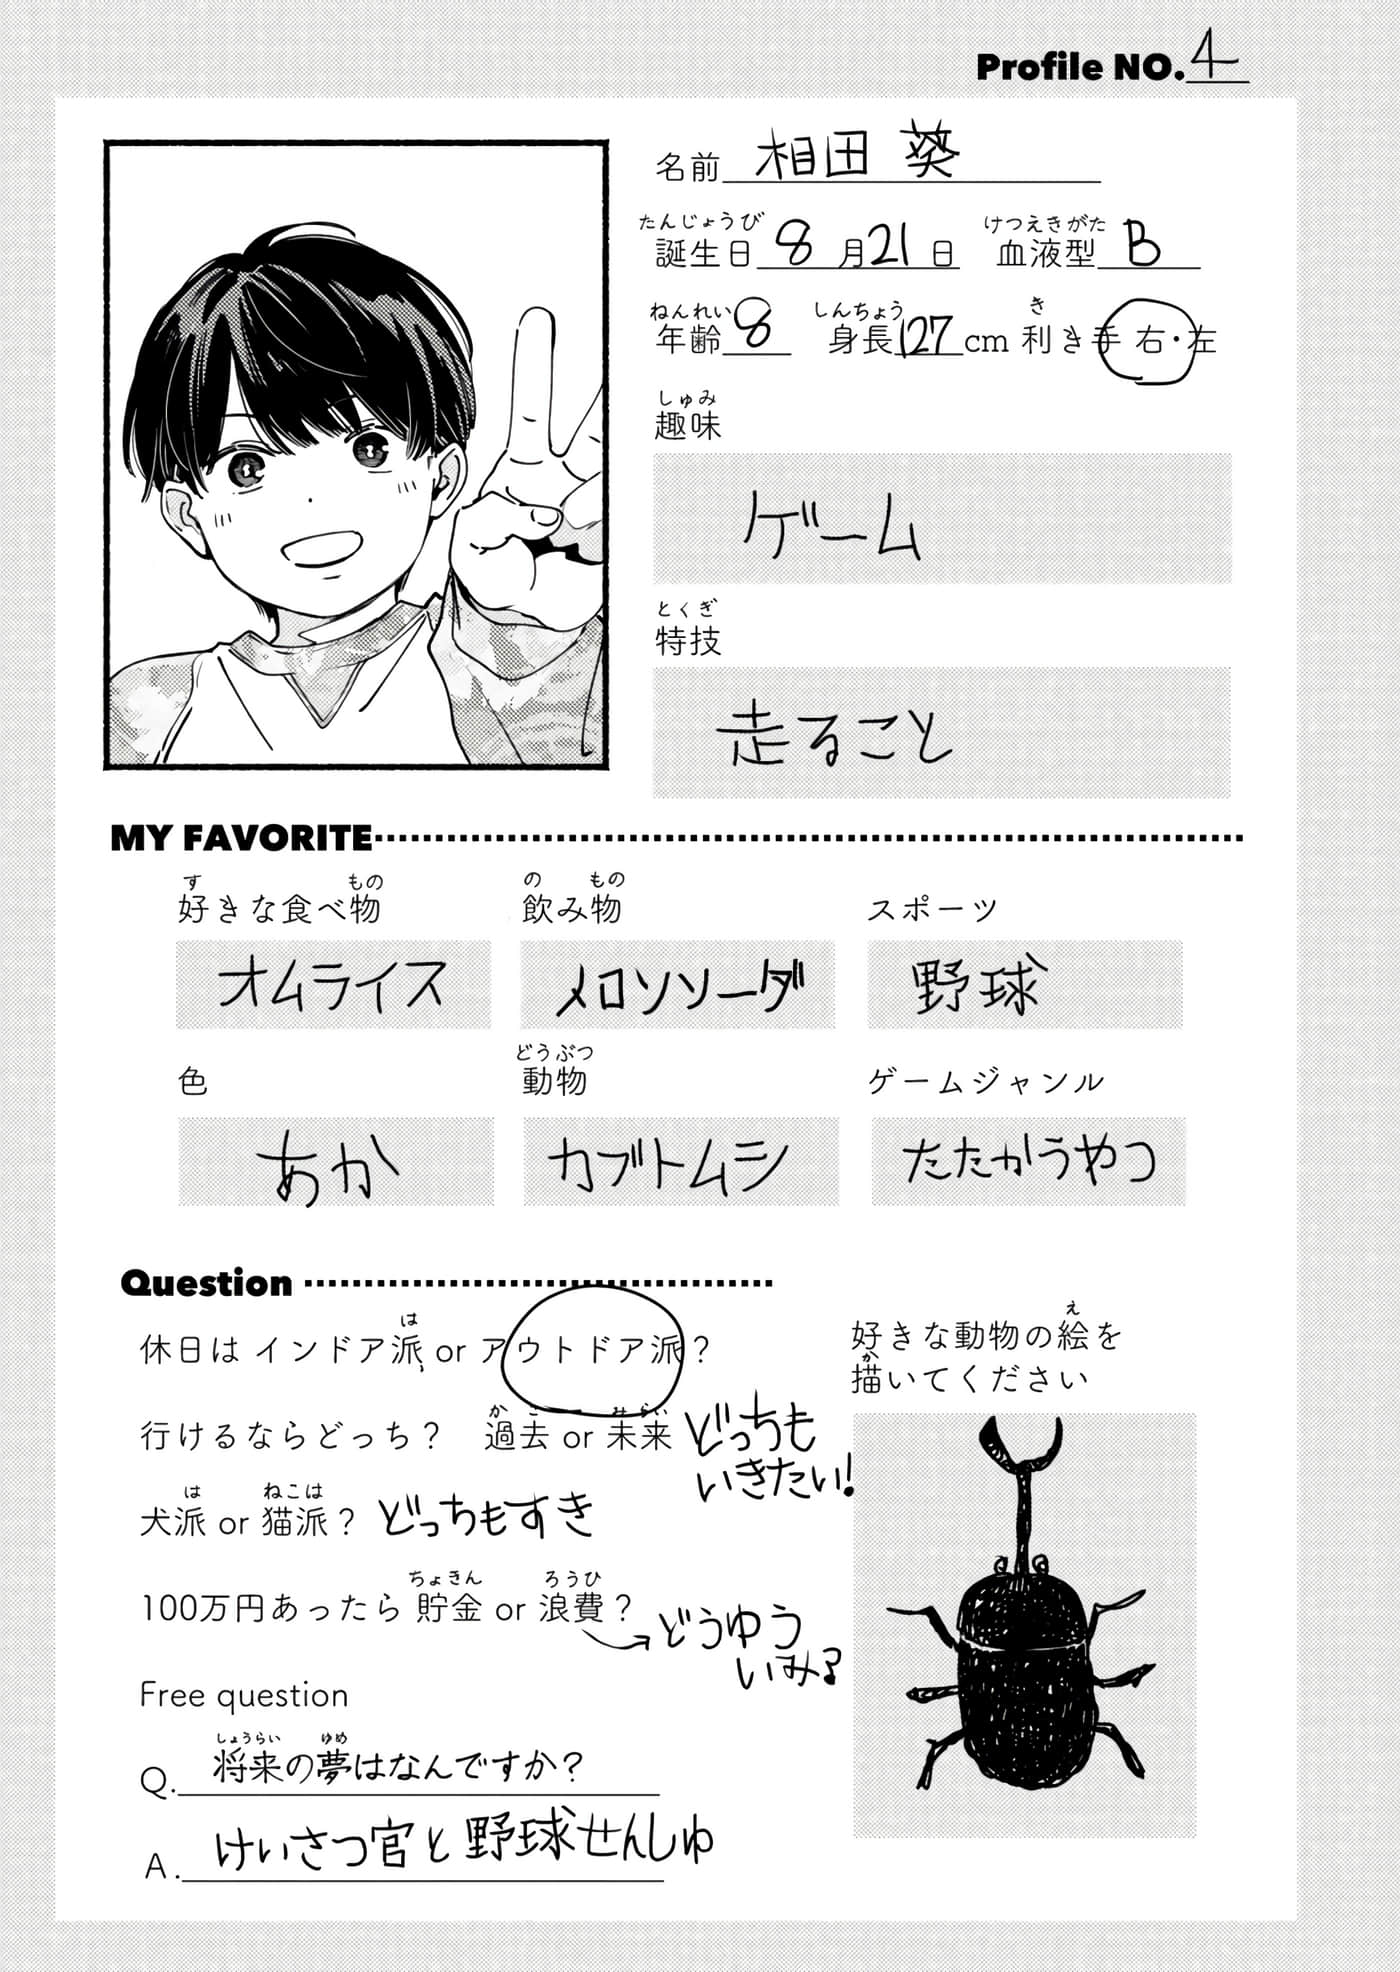 Profile NO. 4
名前 相田 葵
たんじょうび けつえきがた
誕生日 8 月 21 日 血液型 B
ねんれい しんちょう き
年齢 8 身長 127 cm 利き手 右・左
しゅみ
趣味
ゲーム
とくぎ
特技
走ること
MY FAVORITE
す もの
好きな食べ物
オムライス
の もの
飲み物
メロンソーダ
スポーツ
野球
色
あか
どうぶつ
動物
カブトムシ
ゲームジャンル
たたかうやつ
Question
は
休日は インドア派 or アウトドア派？
かこ みらい
行けるならどっち？ 過去 or 未来 どっちも
いきたい!
は ねこは
犬派 or 猫派？ どっちもすき
ちょきん ろうひ
100万円あったら 貯金 or 浪費？
どうゆう
いみ?
Free question
しょうらい ゆめ
Q. 将来の夢はなんですか？
A. けいさつ官と野球せんしゅ
え
好きな動物の絵を
か
描いてください